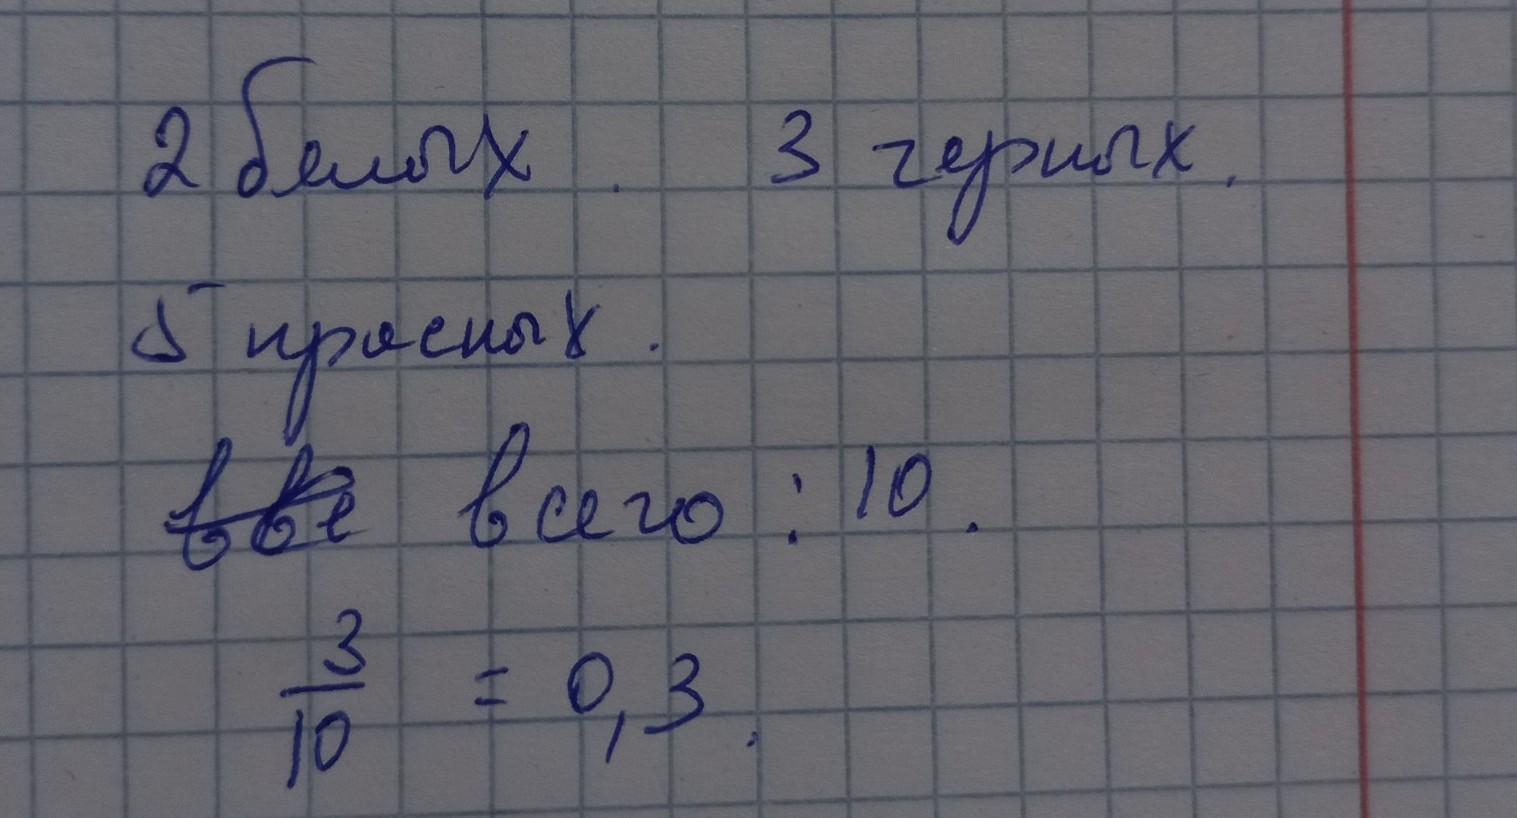 2 белых. 3 черных.
5 красных.
всего: 10.
3/10 = 0,3.